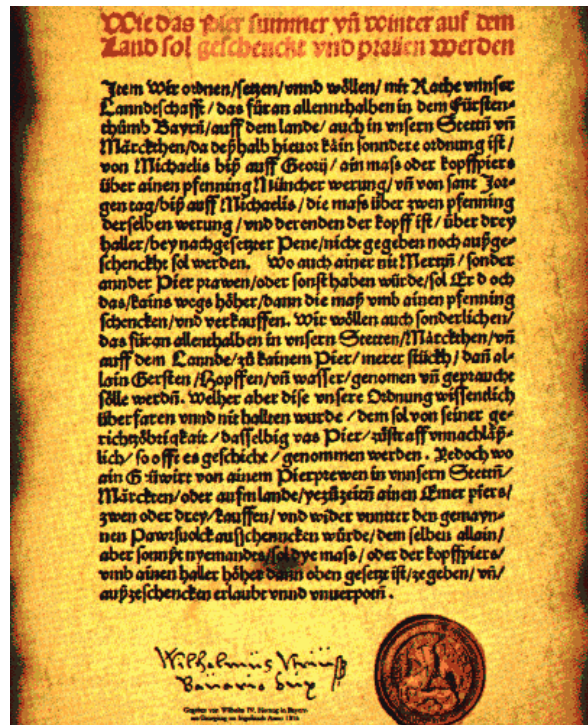 Wie das Pier summer vñ winter auf dem
Land sol geschenckt vnd prauen werden
Item Wir ordnen/setzen/vnnd wöllen/mit Rathe vnnser
Lanndtschafft/das für an allennthalben in dem Fürsten-
thůmb Bayrñ/auff dem lande/auch in vnsern Stettñ vñ
Märckthen/da deßhalb hieuor kain sonndere ordnung ist/
von Michaelis biß auff Georij/ain mass oder kopffpiers
über ainen pfenning Müncher werung/vñ von sant Jor-
gen tag/biß auff Michaelis/die mass über zwen pfenning
derselben werung/vnd derenden der kopff ist/über drey
haller/bey nachgesetzter Pene/nicht gegeben noch außge-
schenckht sol werden. Wo auch ainer nit Mertzñ/sonder
annder Pier prawen/oder sonst haben würde/sol Er d och
das/kains wegs höher/dann die maß vmb ainen pfenning
schencken/vnd verkauffen. Wir wöllen auch sonderlichen/
das für an allenthalben in vnsern Stetten/Märckthen/vñ
auff dem Lannde/zů kainem Pier/merer stückh/dañ al-
lain Gersten/Hopffen/vñ wasser/genomen vñ gepraucht
sölle werdñ. Welher aber dise vnsere Ordnung wissentlich
überfaren vnnd nit hallten wurde/dem sol von seiner ge-
richtzöbrigkait/dasselbig vas Pier/zůstraff vnnachläß-
lich/so offt es geschicht/genommen werden. Yedoch wo
ain Güwirt von ainem Pierprewen in vnnsern Stettñ/
Märckten/oder aufm lande/yezůzeitñ ainen Emer piers/
zwen oder drey/kauffen/vnd wider vnntter den gemayn-
nen Pawrsuolck ausschenncken würde/dem selben allain/
aber sonnßt nyemandes/sol dye mass/oder der kopffpiers/
vmb ainen haller höher dann oben gesetzt ist/ze geben/vñ/
außzeschencken erlaubt vnnd vnuerpotñ.
Gegeben von Wilhelm IV. Herzog in Bayern
am Georgitag zu Ingolstadt Anno 1516